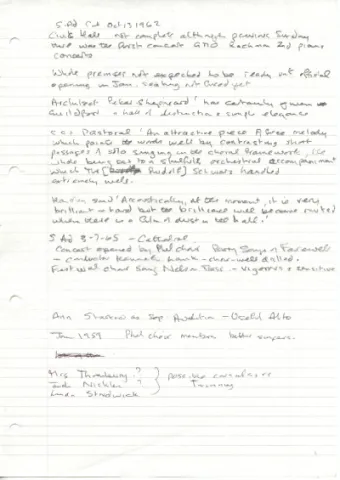 S Ad Oct 13 1962
Civic Hall not complete although previous Sunday
there was the first concert GPO Rachman 2nd piano
concerto
Whole premises not expected to be ready until official
opening in Jan. seating not fixed yet
Architect Peter Shepheard 'has certainly given
Guildford a hall of distinction & simple elegance
Pastoral 'An attractive piece A free melody
which points the words well by contrasting short
passages & solo singing in the choral framework, the
whole being set to a skilful orchestral accompaniment
which Mr Rudolf Schwarz handled
extremely well.
Having said 'Acoustically, at the moment, it is very
brilliant - hard but the brilliance will become muted
when there is a film of dust in the hall.'
S Ad 3-7-65 - Cathedral
Concert opened by Phil choir Parry Songs of Farewell
- conductor Kenneth Lank - choir well drilled.
Festival choir sang Nelson Mass - vigorous & sensitive
Ann as Sop Audition - Useful Alto
Jan 1959 Phil choir members better singers.
Mrs ?
Judy Nicklin ?
Linda Strudwick
possible